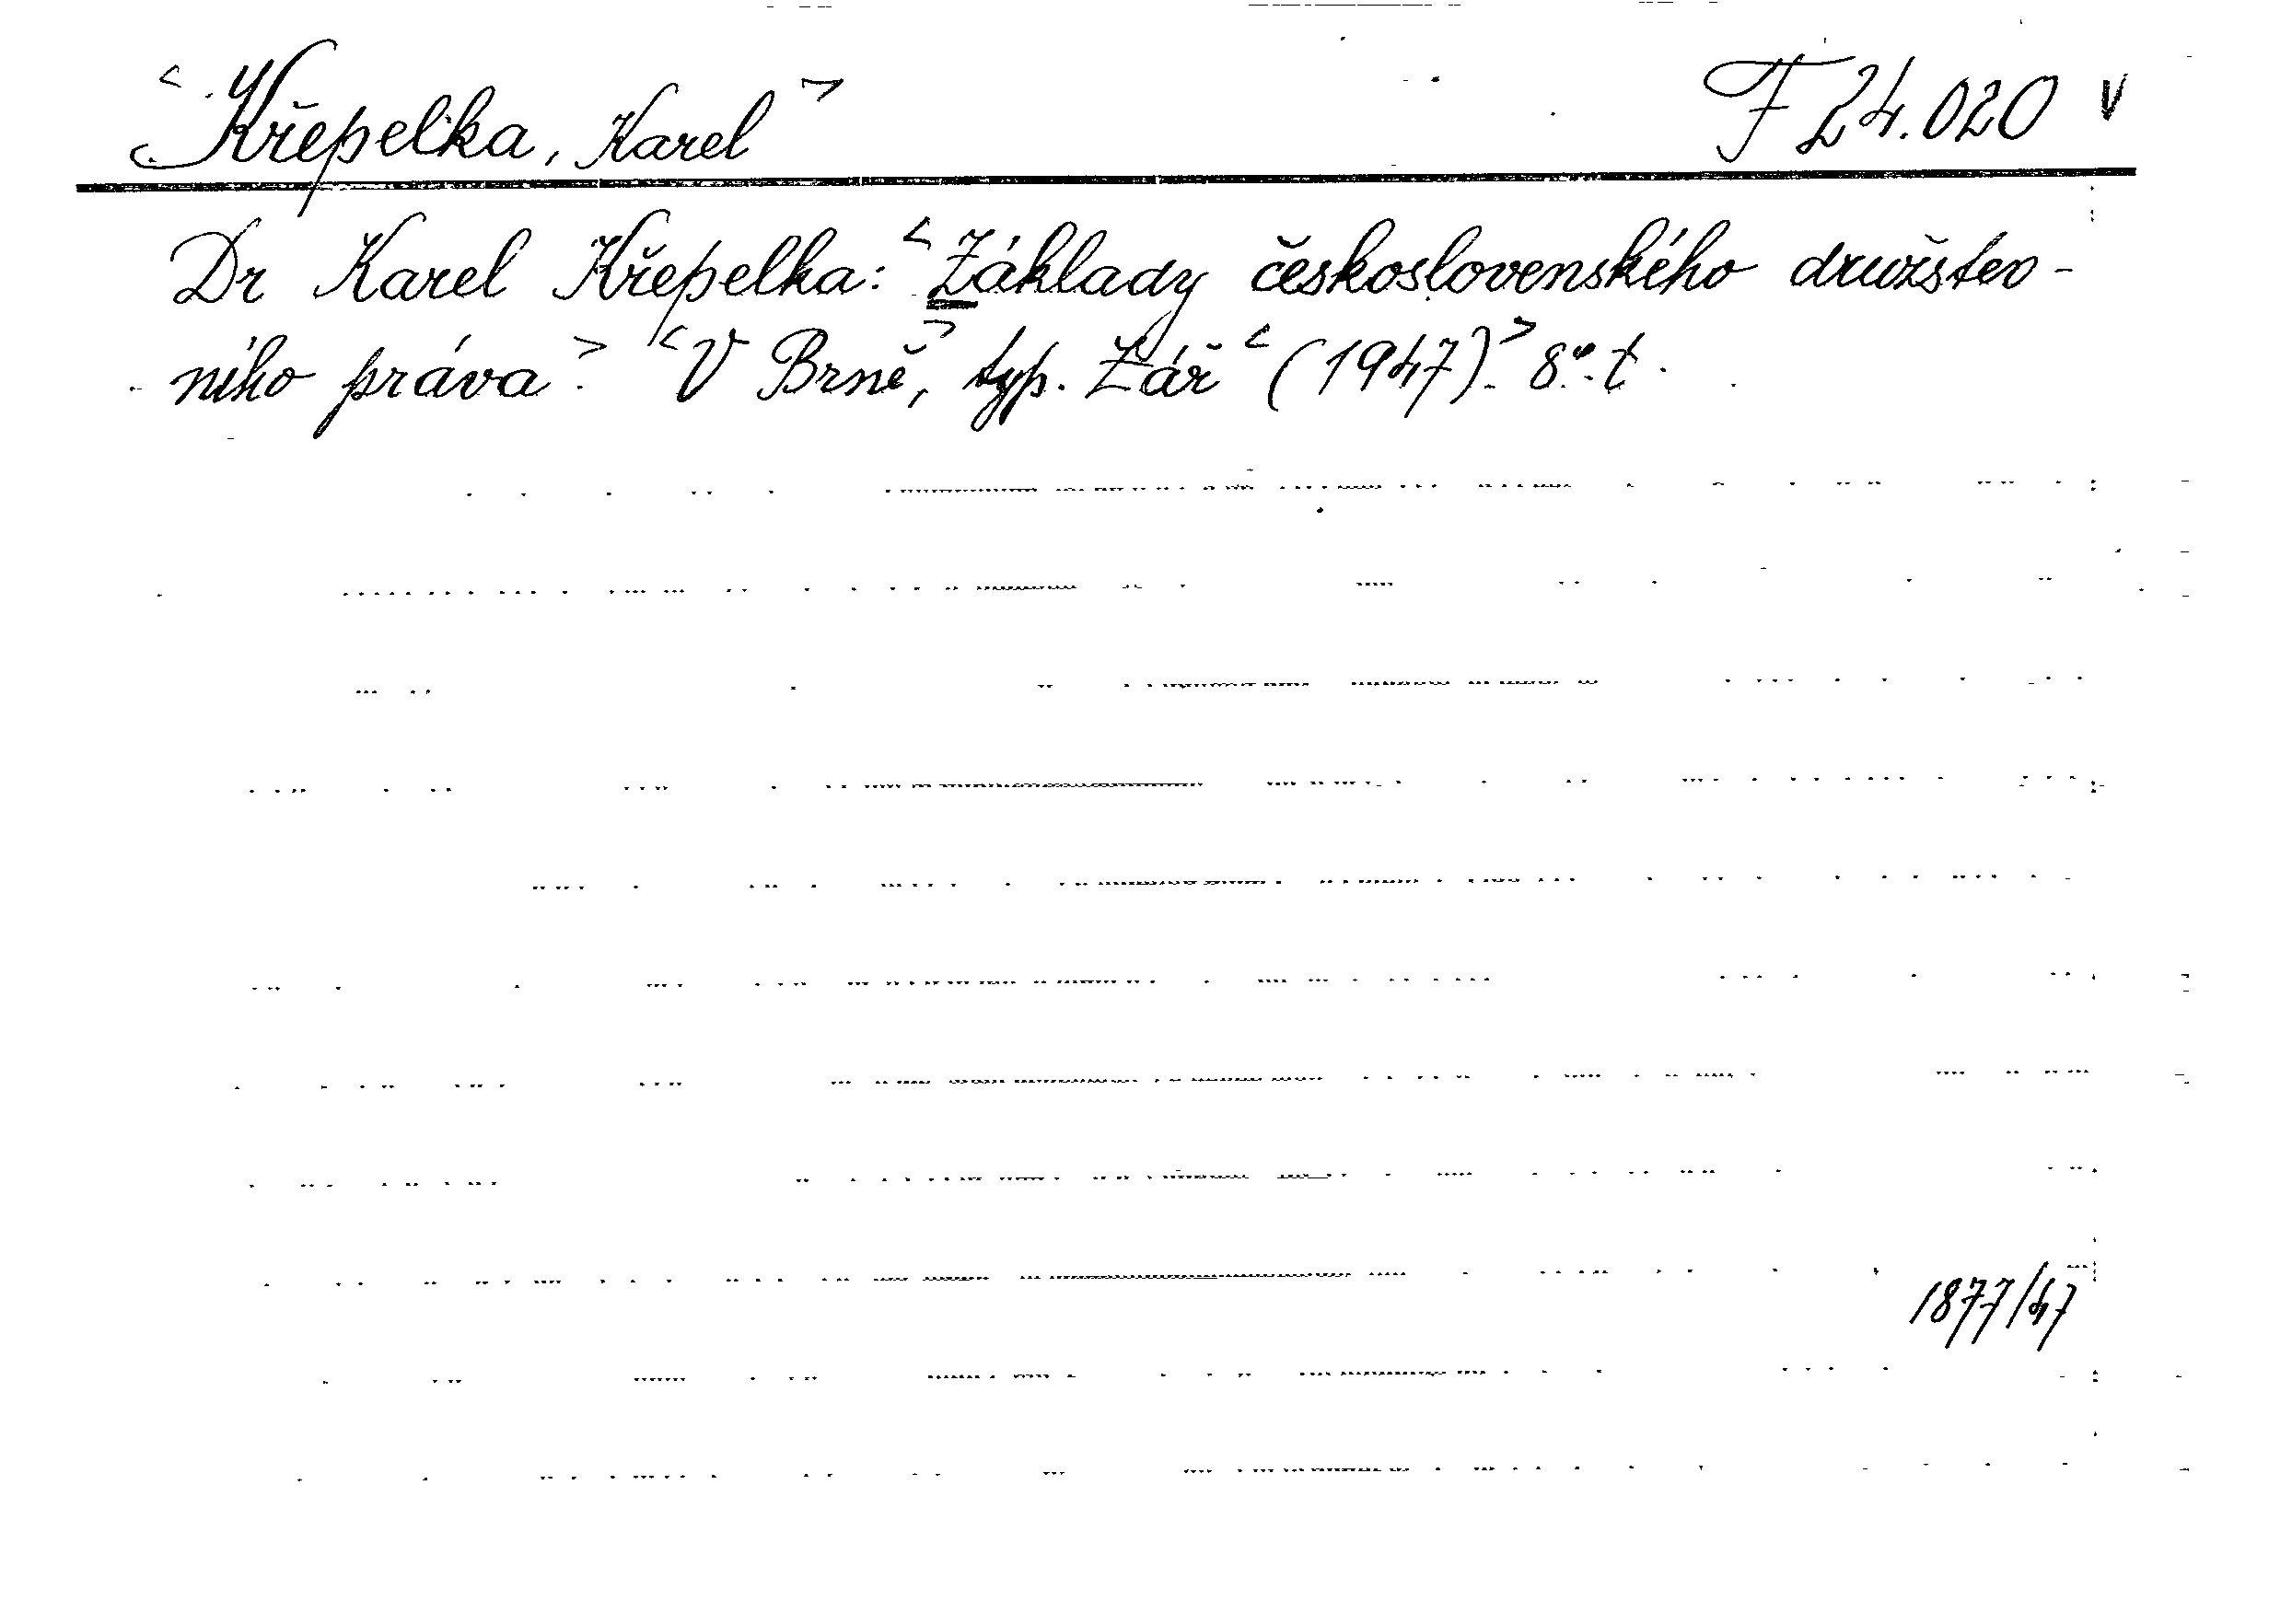 <Křepelka, Karel> F 24.020 v
Dr Karel Křepelka: <Základy československého družstev-
ního práva> <V Brně,> typ. Zář <(1947)> 8º. t.
1877/47